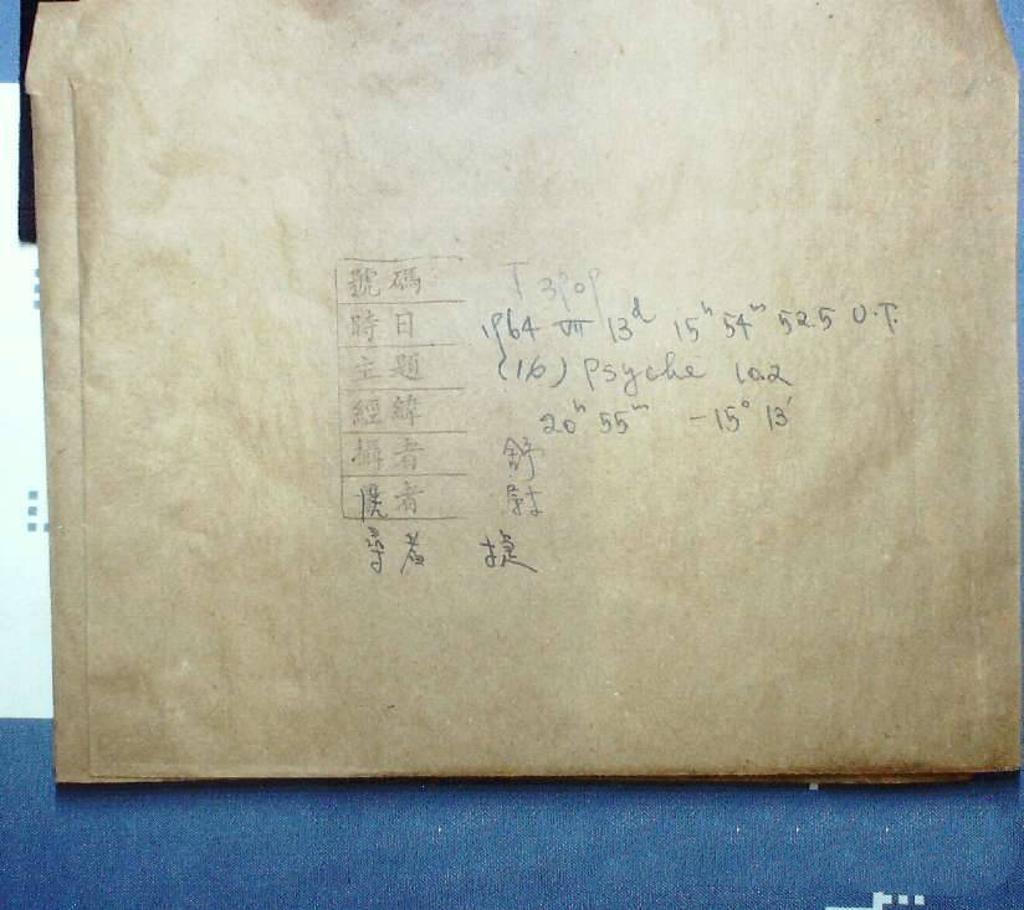 號碼 T 3909
時日 1964 VII 13ᵈ 15ʰ 54ᵐ 52.5 U.T.
主題 (16) Psyche 10.2
經緯 20ʰ 55ᵐ -15° 13′
攝者 舒
者
導者 捷